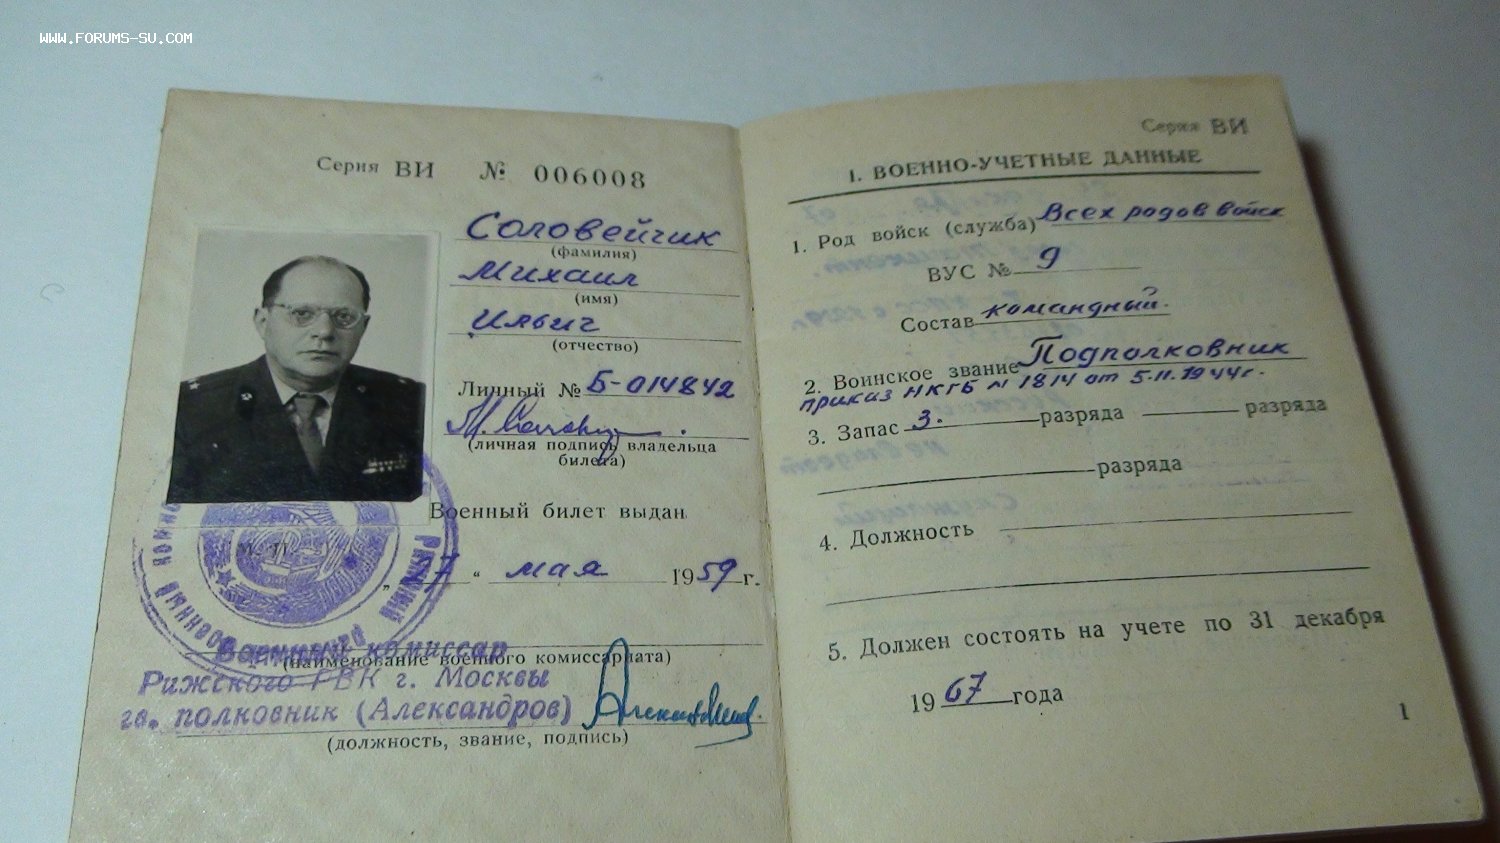 WWW.FORUMS-SU.COM
Серия ВИ № 006008
Соловейчик
(фамилия)
Михаил
(имя)
Ильич
(отчество)
Личный № Б-014842
(личная подпись владельца
билета)
Военный билет выдан
М. П.
„ 7 “ мая 1959 г.
(наименование военного комиссариата)
Военный комиссар
Рижского РВК г. Москвы
гв. полковник (Александров)
(должность, звание, подпись)
Серия ВИ
I. ВОЕННО-УЧЕТНЫЕ ДАННЫЕ
1. Род войск (служба) Всех родов войск
ВУС № 9
Состав командный.
2. Воинское звание Подполковник
приказ НКГБ № 1814 от 5.11.1944г.
3. Запас 3. разряда разряда
разряда
4. Должность
5. Должен состоять на учете по 31 декабря
1967 года
1